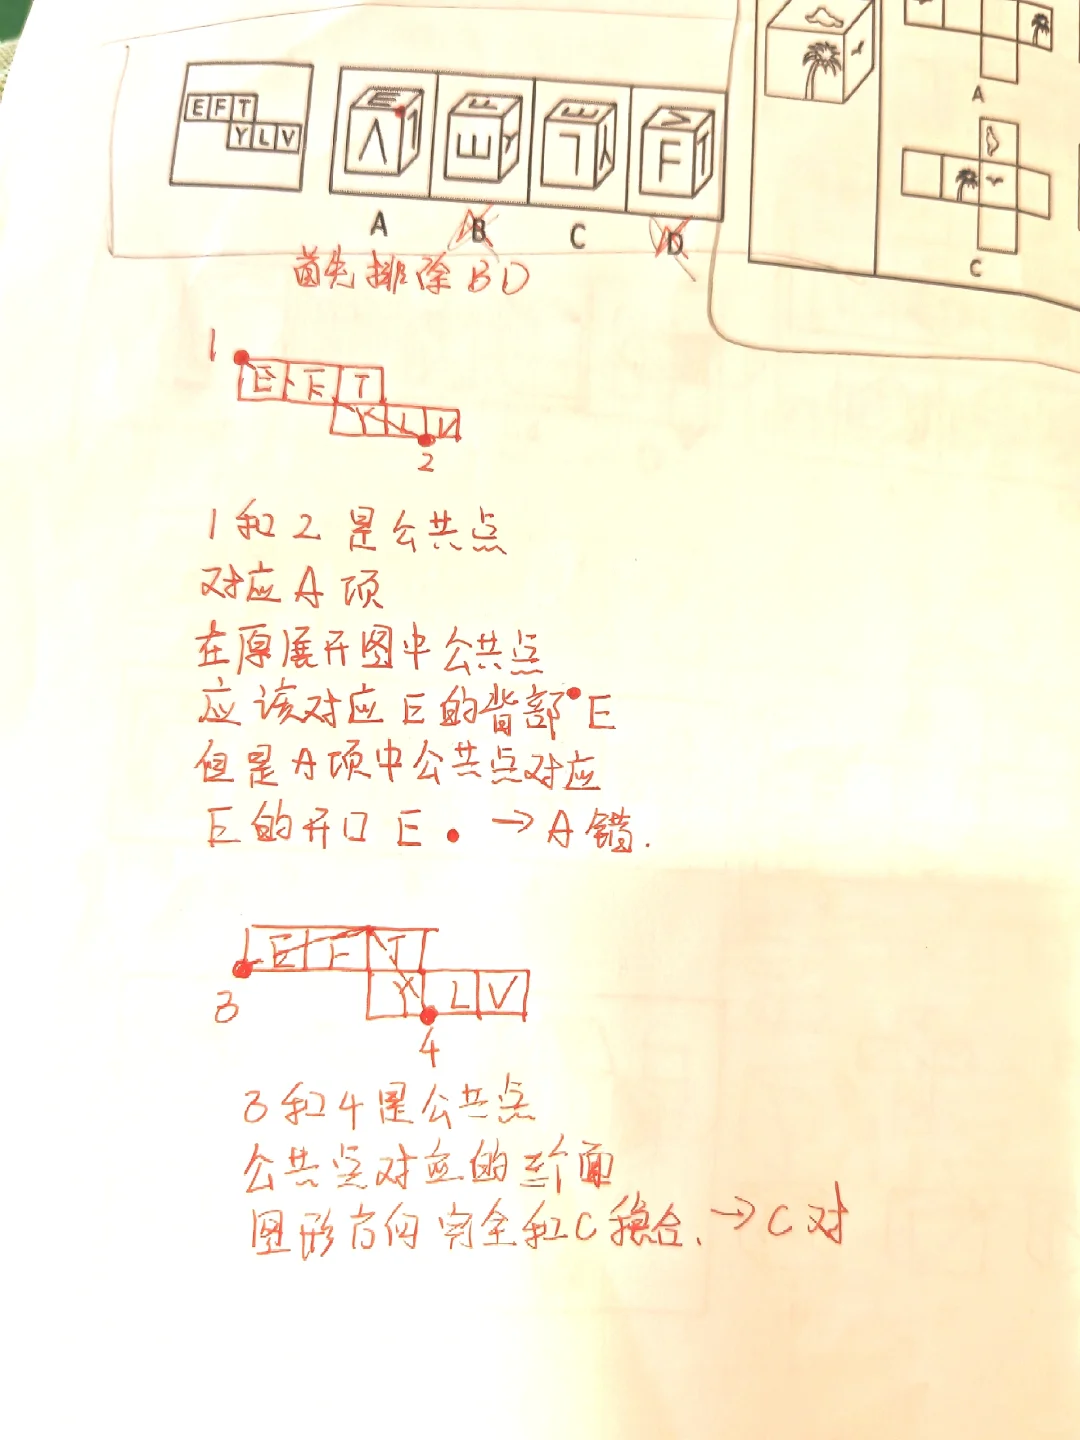 E F T
Y L V
A
B
C
D
A
C
首先排除BD
1
E F T
Y L V
2
1和2是公共点
对应A项
在原展开图中公共点
应该对应E的背部•E
但是A项中公共点对应
E的开口E. →A错.
E F T
3
Y L V
4
3和4是公共点
公共点对应的三个面
图形方向完全和C稳合.→C对